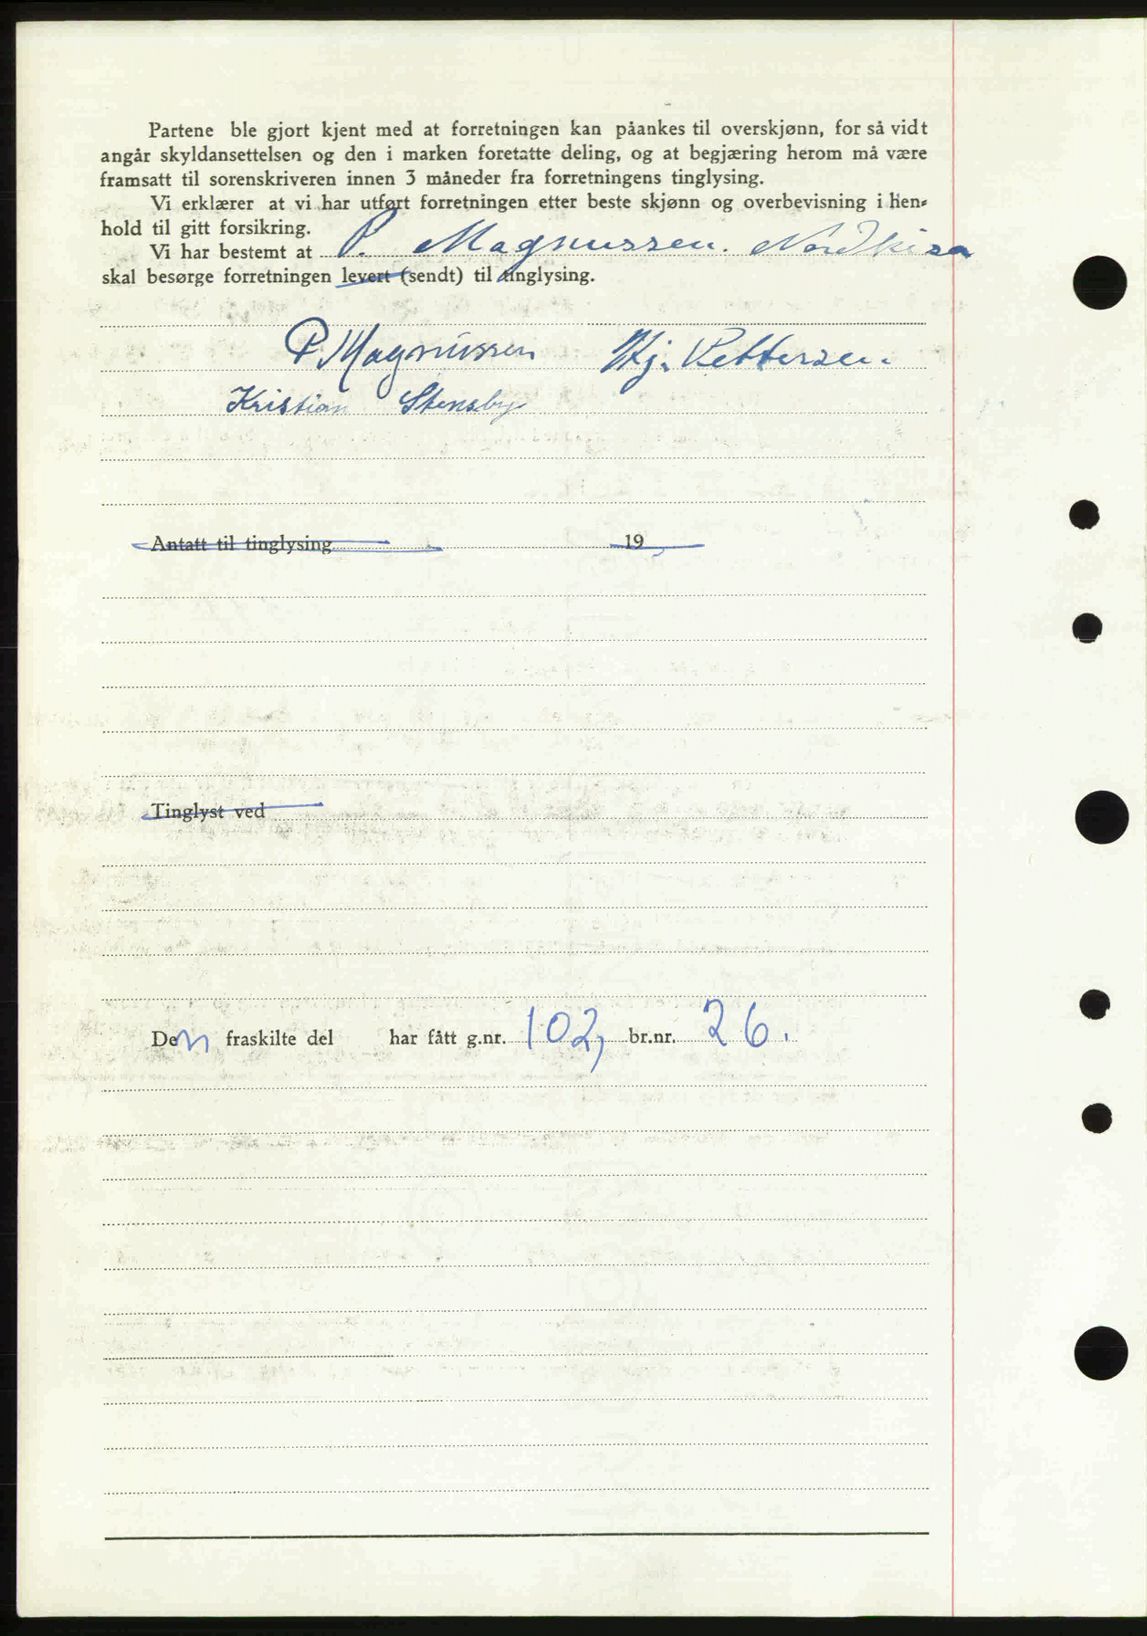 Partene ble gjort kjent med at forretningen kan påankes til overskjønn, for så vidt
angår skyldansettelsen og den i marken foretatte deling, og at begjæring herom må være
framsatt til sorenskriveren innen 3 måneder fra forretningens tinglysing.
Vi erklærer at vi har utført forretningen etter beste skjønn og overbevisning i hen-
hold til gitt forsikring.
Vi har bestemt at P. Magnussen. Nordkisa
skal besørge forretningen levert (sendt) til tinglysing.
P. Magnussen Hj. Pettersen.
Kristian Stensby
Antatt til tinglysing 19
Tinglyst ved
Den fraskilte del har fått g.nr. 102, br.nr. 26.